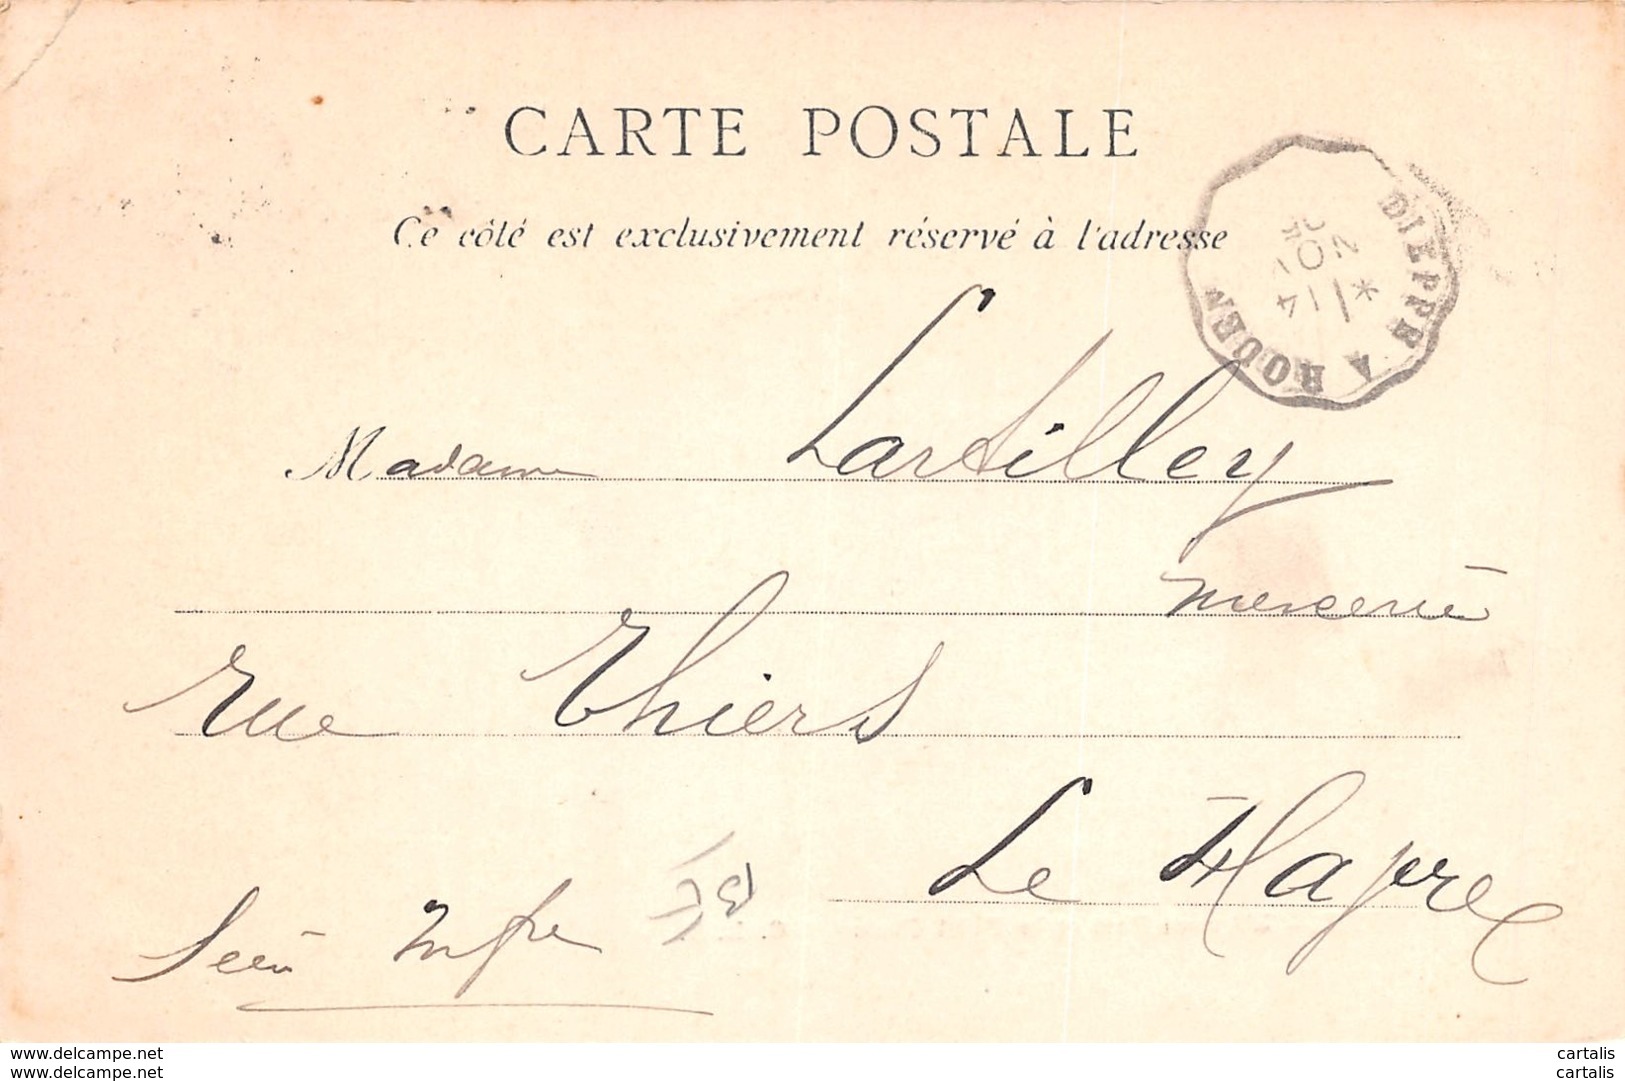 CARTE POSTALE
Ce côté est exclusivement réservé à l'adresse
DIEPPE A ROUEN
Madame Lartilley
mercerie
rue Thiers
Le Havre
Seine Infre
www.delcampe.net
www.delcampe.net
cartalis
cartalis